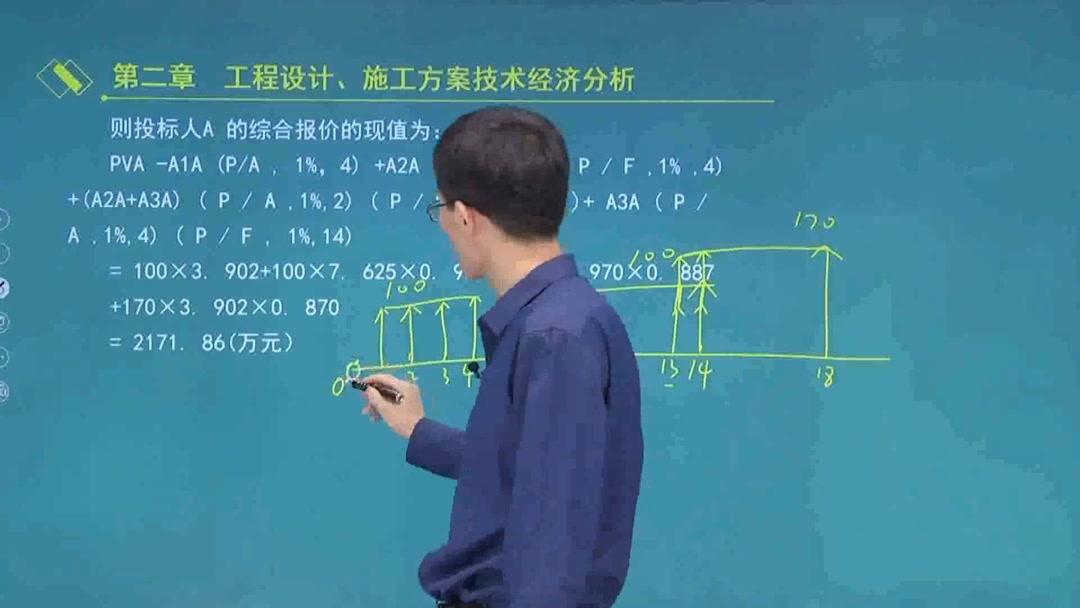 第二章 工程设计、施工方案技术经济分析
则投标人A 的综合报价的现值为:
PVA -A1A (P/A , 1%, 4) +A2A P / F ,1% ,4)
+(A2A+A3A) ( P / A ,1%,2) ( P / )+ A3A ( P /
A ,1%,4) ( P / F , 1%,14)
= 100×3. 902+100×7. 625×0. 970×0. 887
+170×3. 902×0. 870
= 2171. 86(万元)
100
100
170
0 2 3 4 13 14 18